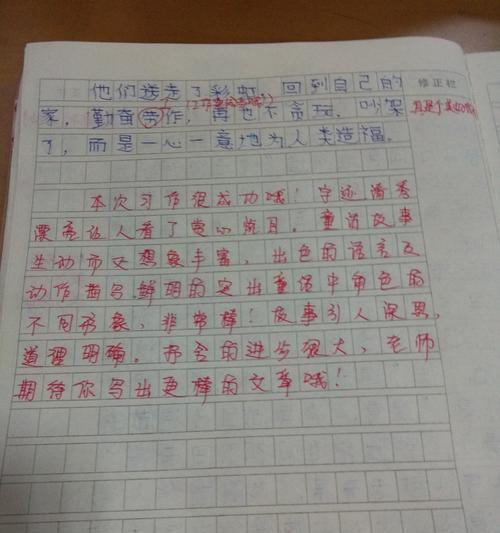 他们送走了彩虹，回到自己的 修正栏
家，勤奋劳作，再也不贪玩，吵架
了，而是一心一意地为人类造福。
本次习作很成功哦！字迹清秀
漂亮让人看了赏心悦目。童话故事
生动而又想象丰富，出色的语言互
动作描写，鲜明的突出童话中角色的
不同形象，非常棒！故事引人深思，
道理明确。你的进步很大，老师
期待你写出更棒的文章哦！